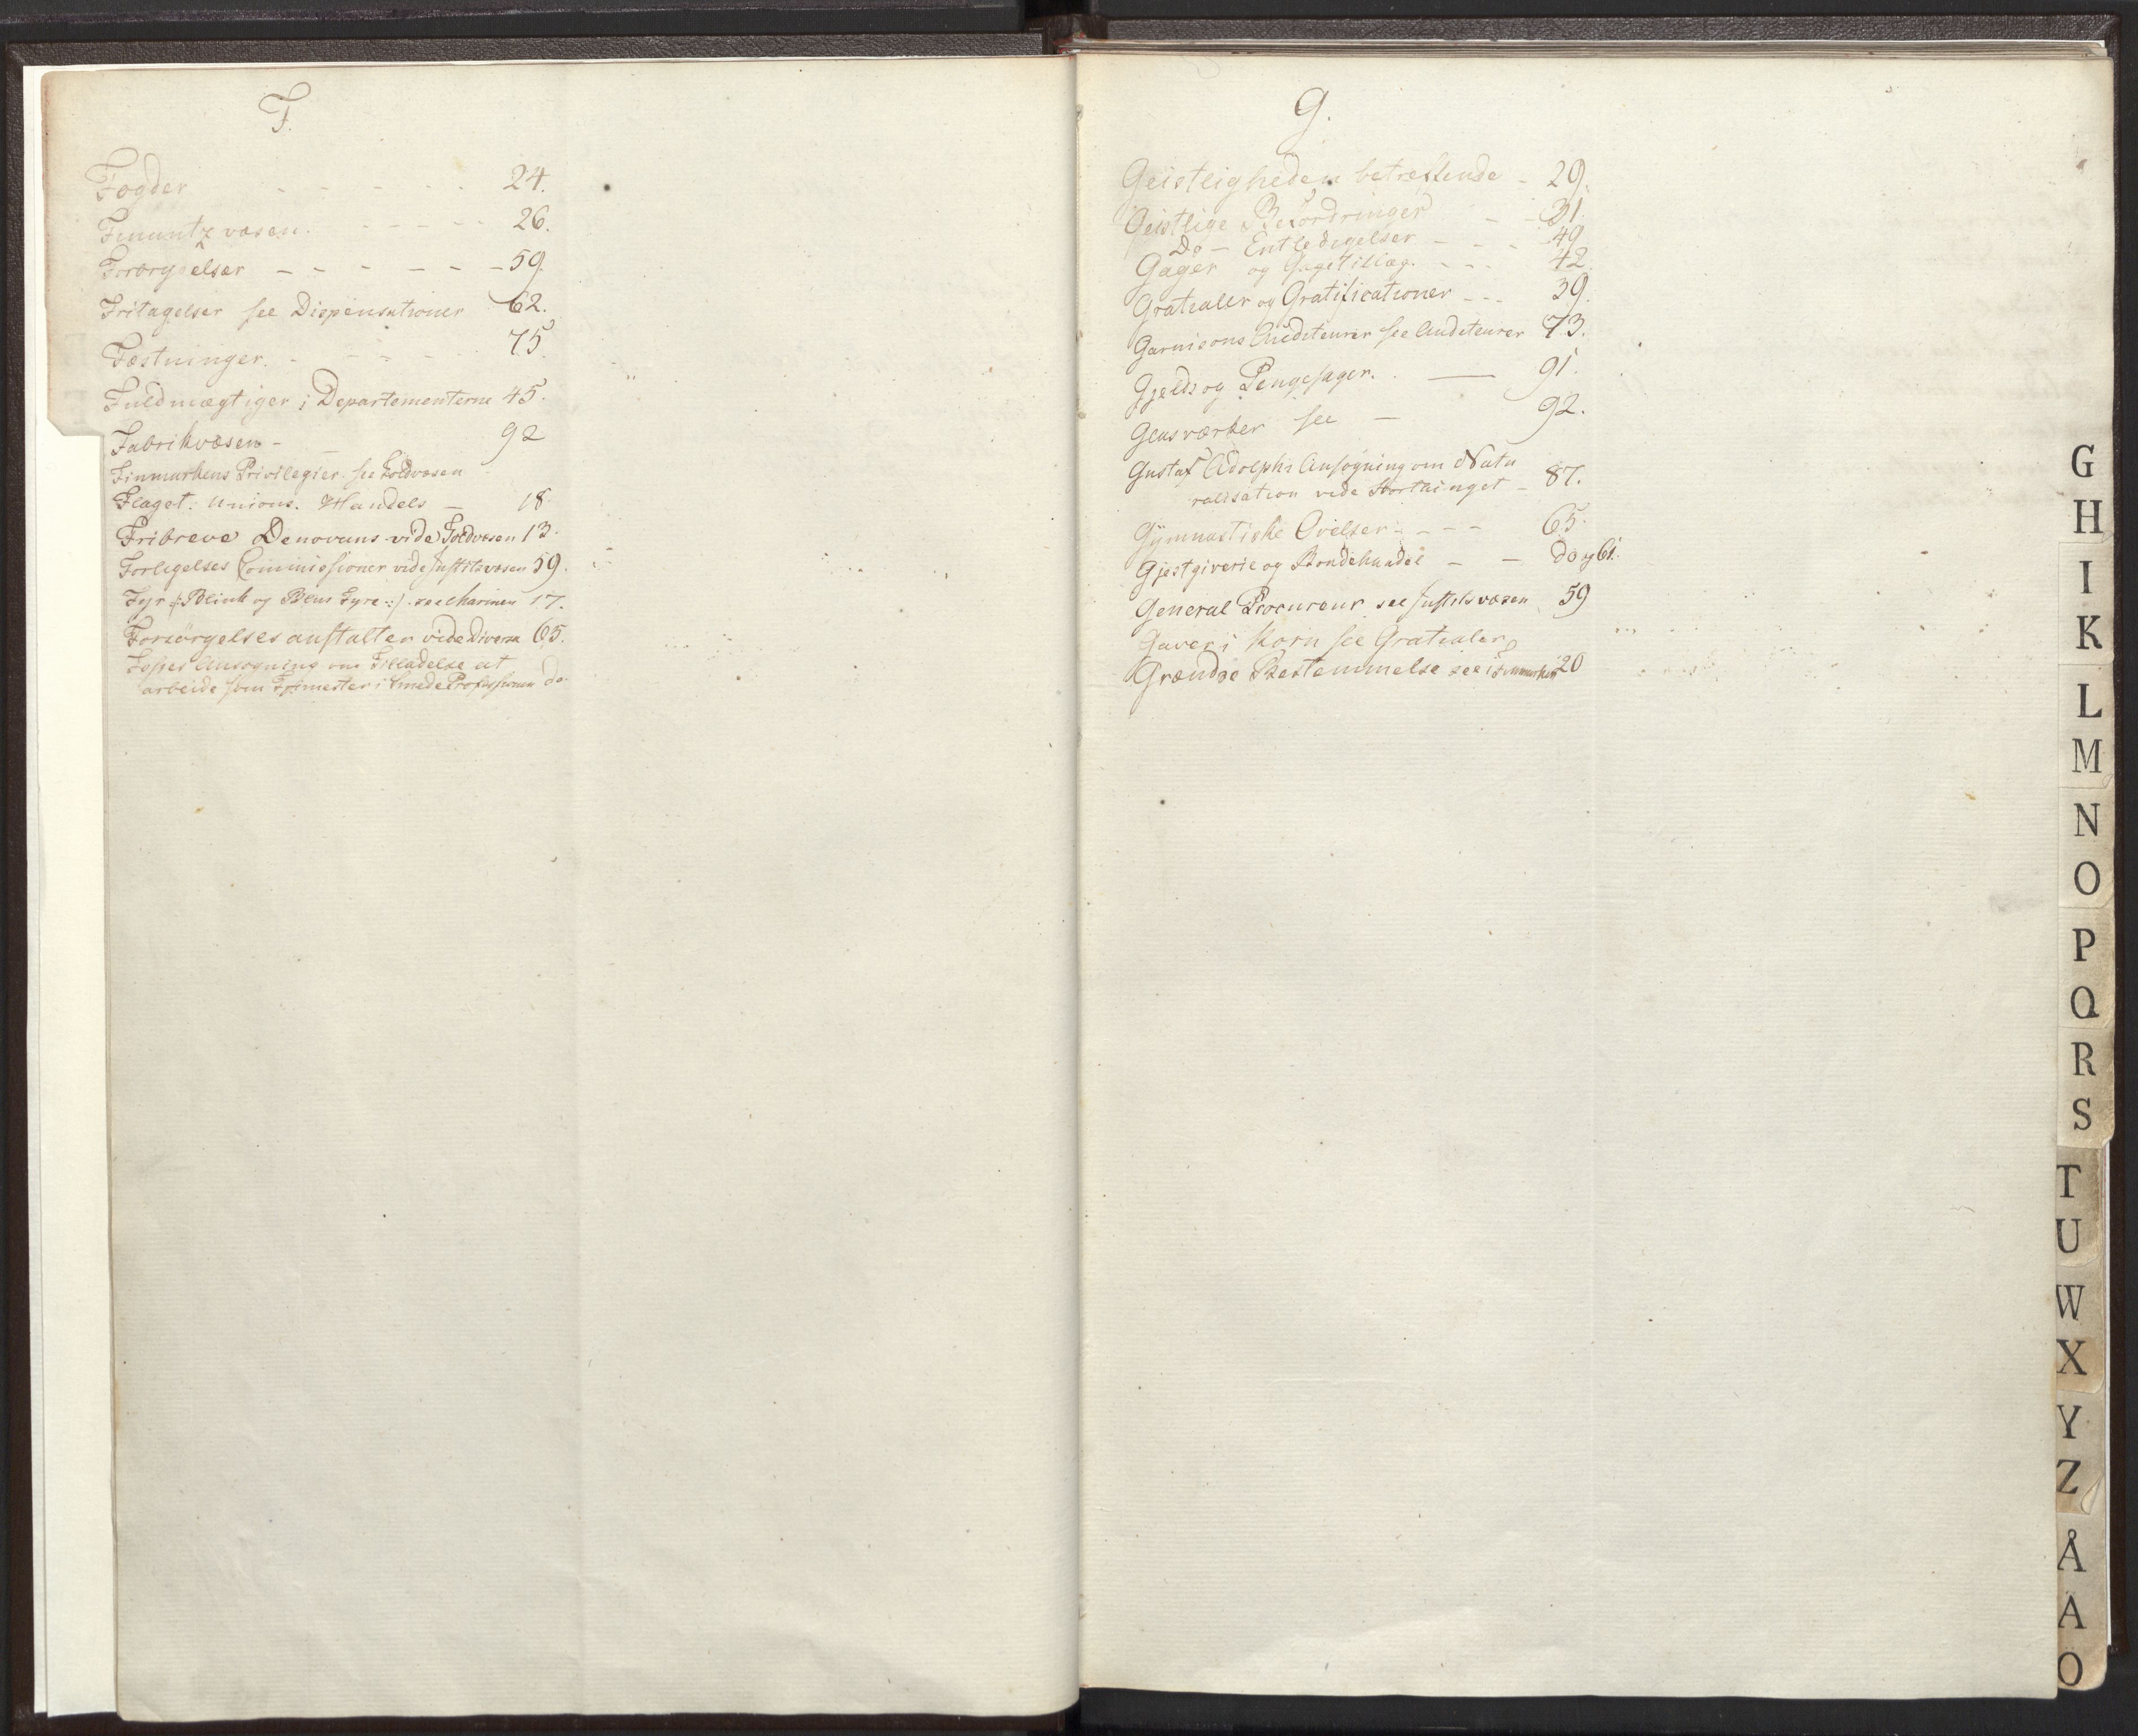 F.
Fogder - - - - - 24.
Finantz væsen. - - - - - 26.
Forbrydelser - - - - - - 59.
Fritagelser see Dispensationer 62.
Fæstninger. - - - - 75.
Fuldmægtiger i Departementerne 45.
Fabrikvæsen - - 92
Finmarkens Privilegier. see Toldvæsen
Flaget. Unions. Handels - 18.
Fribreve Denovans vide Toldvæsen 13.
Forligelses Commissioner vide Justitsvæsen 59.
Fyr /: Blink og Blus Fyre :/. see Marinen 17.
Forsörgelses anstalter vide Diversa 65.
Ansøgning om Tilladelse at
arbeide som i Smede Professionen do.
G.
Geistligheden betreffende - 29.
Geistlige Befordringer - - 31.
Do - Entledigelser - - - 49
Gager og Gagetillæg. - - - 42
Gratialer og Gratificationer - - - 39.
Garnisons Auditeurer see Auditeurer 73.
Gjelds og Pengesager. - 91.
Glasværker see - 92.
Gustaf Adolphs Ansøgning om Natu
ralisation vide Storthinget - 87.
Gymnastiske Övelser - - - - 65.
Gjestgiverie og Bondehandel - - do og 61.
General Procureur see Justitsvæsen 59
Gaver i Korn see Gratialer
Grændse Bestemmelse see i Finmarken 20
G
H
I
K
L
M
N
O
P
Q
R
S
T
U
W
X
Y
Z
Å
A
O